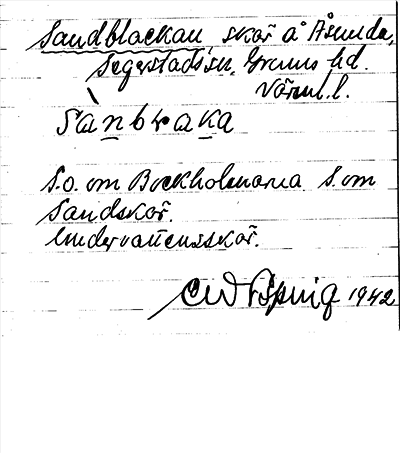 Sandblackan skär å Åsunda,
Segerstads sn, Grums hd.
Värml. l.
sànbraka
S.o. om Bockholmarna S. om
Sandskär.
Undervattensskär.
1942